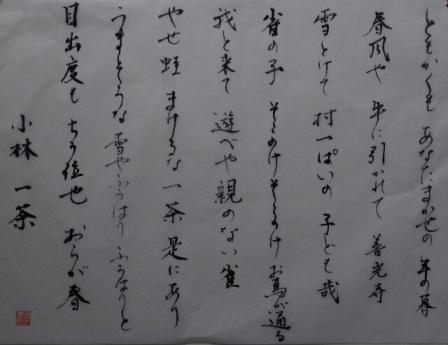 ともかくも あなたまかせの 年の暮
春風や 牛に引かれて 善光寺
雪とけて 村一ぱいの 子ども哉
雀の子 そこのけそこのけ お馬が通る
我と来て 遊べや親のない雀
やせ蛙 まけるな一茶 是にあり
うまそうな 雪やふうはり ふうはりと
目出度も ちう位也 おらが春
小林 一茶